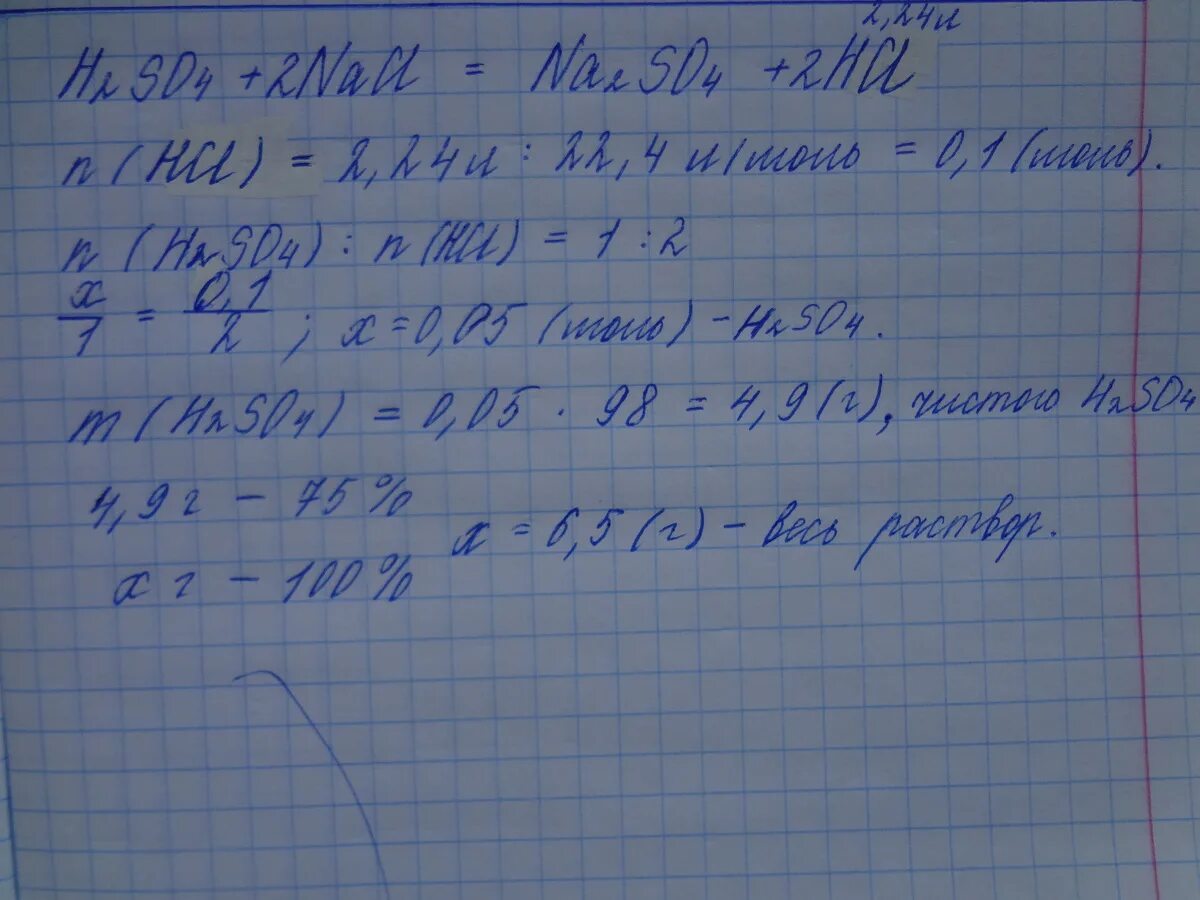 2,24л
H₂SO₄ + 2NaCl = Na₂SO₄ + 2HCl
n (HCl) = 2,24л : 22,4 л/моль = 0,1 (моль).
n (H₂SO₄) : n (HCl) = 1 : 2
x/1 = 0,1/2 ; x = 0,05 (моль) – H₂SO₄.
m (H₂SO₄) = 0,05 · 98 = 4,9 (г), чистого H₂SO₄
4,9 г – 75 %
x = 6,5 (г) – весь раствор.
x г – 100 %